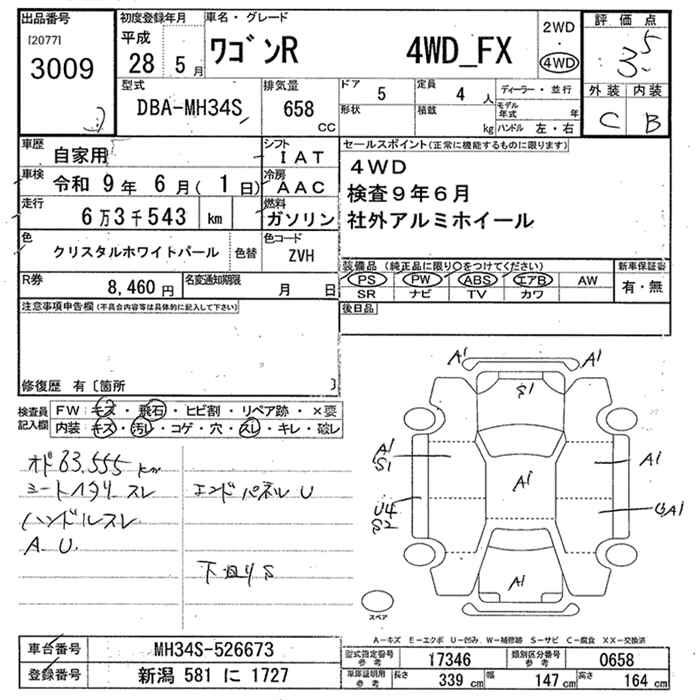 出品番号 初度登録年月 車名・グレード 2WD 評価点
[2077] 平成
3009 28 5月 ワゴンR 4WD_FX 4WD 3.5
型式 排気量 ドア 5 定員 4人 ディーラー・並行 外装 内装
DBA-MH34S 658 cc 形状 積載 kg モデル年式 年 C B
ハンドル 左・右
車歴 自家用 シフト IAT セールスポイント(正常に機能するものに限ります)
車検 令和 9年 6月(1日) 冷房 AAC 4WD
検査9年6月
走行 6万3千543 km 燃料 ガソリン 社外アルミホイール
色 クリスタルホワイトパール 色替 色コード ZVH
装備品(純正品に限り○をつけてください) 新車保証書
R券 8,460円 名変通知期限 月 日 PS PW ABS エアB AW 有・無
SR ナビ TV カワ
注意事項申告欄(不具合内容等は具体的に記入して下さい) 後日品
修復歴 有〔箇所 〕
検査員記入欄 FW: キズ・飛石・ヒビ割・リペア跡・×要
内装: キズ・汚レ・コゲ・穴・スレ・キレ・破レ
オド63,555km
シートヘタリ スレ エンドパネルU
ハンドルスレ
A.U.
下廻りS
A1 A1
S1
A1
S1 A1 A1
U4
S2
A1
スペア
A-キズ E-エクボ U-凹み W-補修跡 S-サビ C-腐食 XX-交換済
車台番号 MH34S-526673 型式指定番号参考 17346 類別区分番号参考 0658
登録番号 新潟 581 に 1727 車庫証明用参考 長さ 339cm 幅 147cm 高さ 164cm